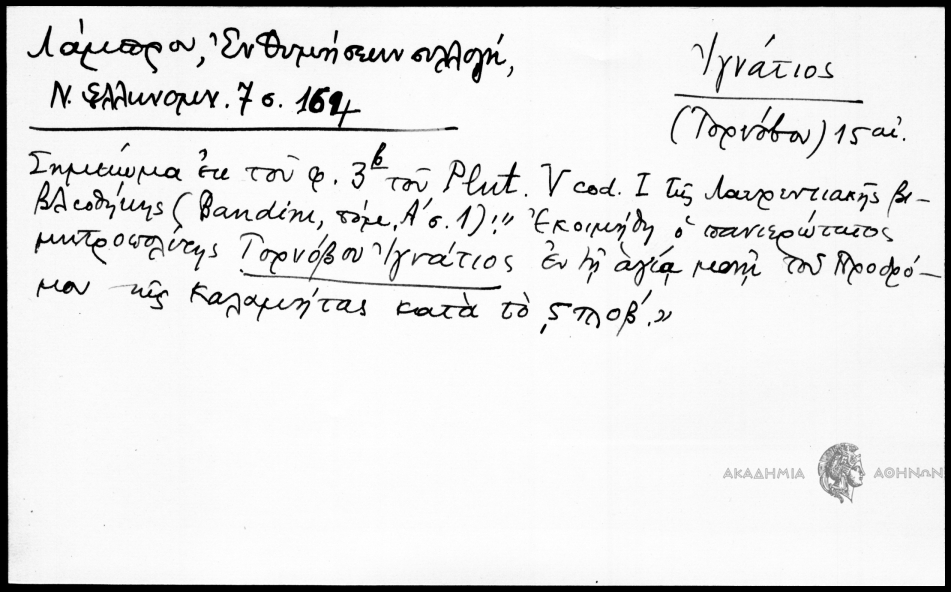 Λάμπρου, Ἐνθυμήσεων συλλογή,
Ν. Ἑλληνομν. 7 σ. 164
Ἰγνάτιος
(Τορνόβου) 15 αἰ.
Σημείωμα ἐκ τοῦ φ. 3β τοῦ Plut. V cod. I τῆς Λαυρεντιακῆς βι-
βλιοθήκης (Bandini, τόμ. Α' σ. 1): "Ἐκοιμήθη ὁ πανιερώτατος
μητροπολίτης Τορνόβου Ἰγνάτιος ἐν τῇ ἁγίᾳ μονῇ τοῦ Προδρό-
μου τῆς κατὰ τὸ
ΑΚΑΔΗΜΙΑ ΑΘΗΝΩΝ